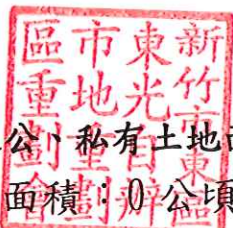 新竹市東區
東光自辦
市地重劃
區重劃會
公、私有土地
面積：0 公頃